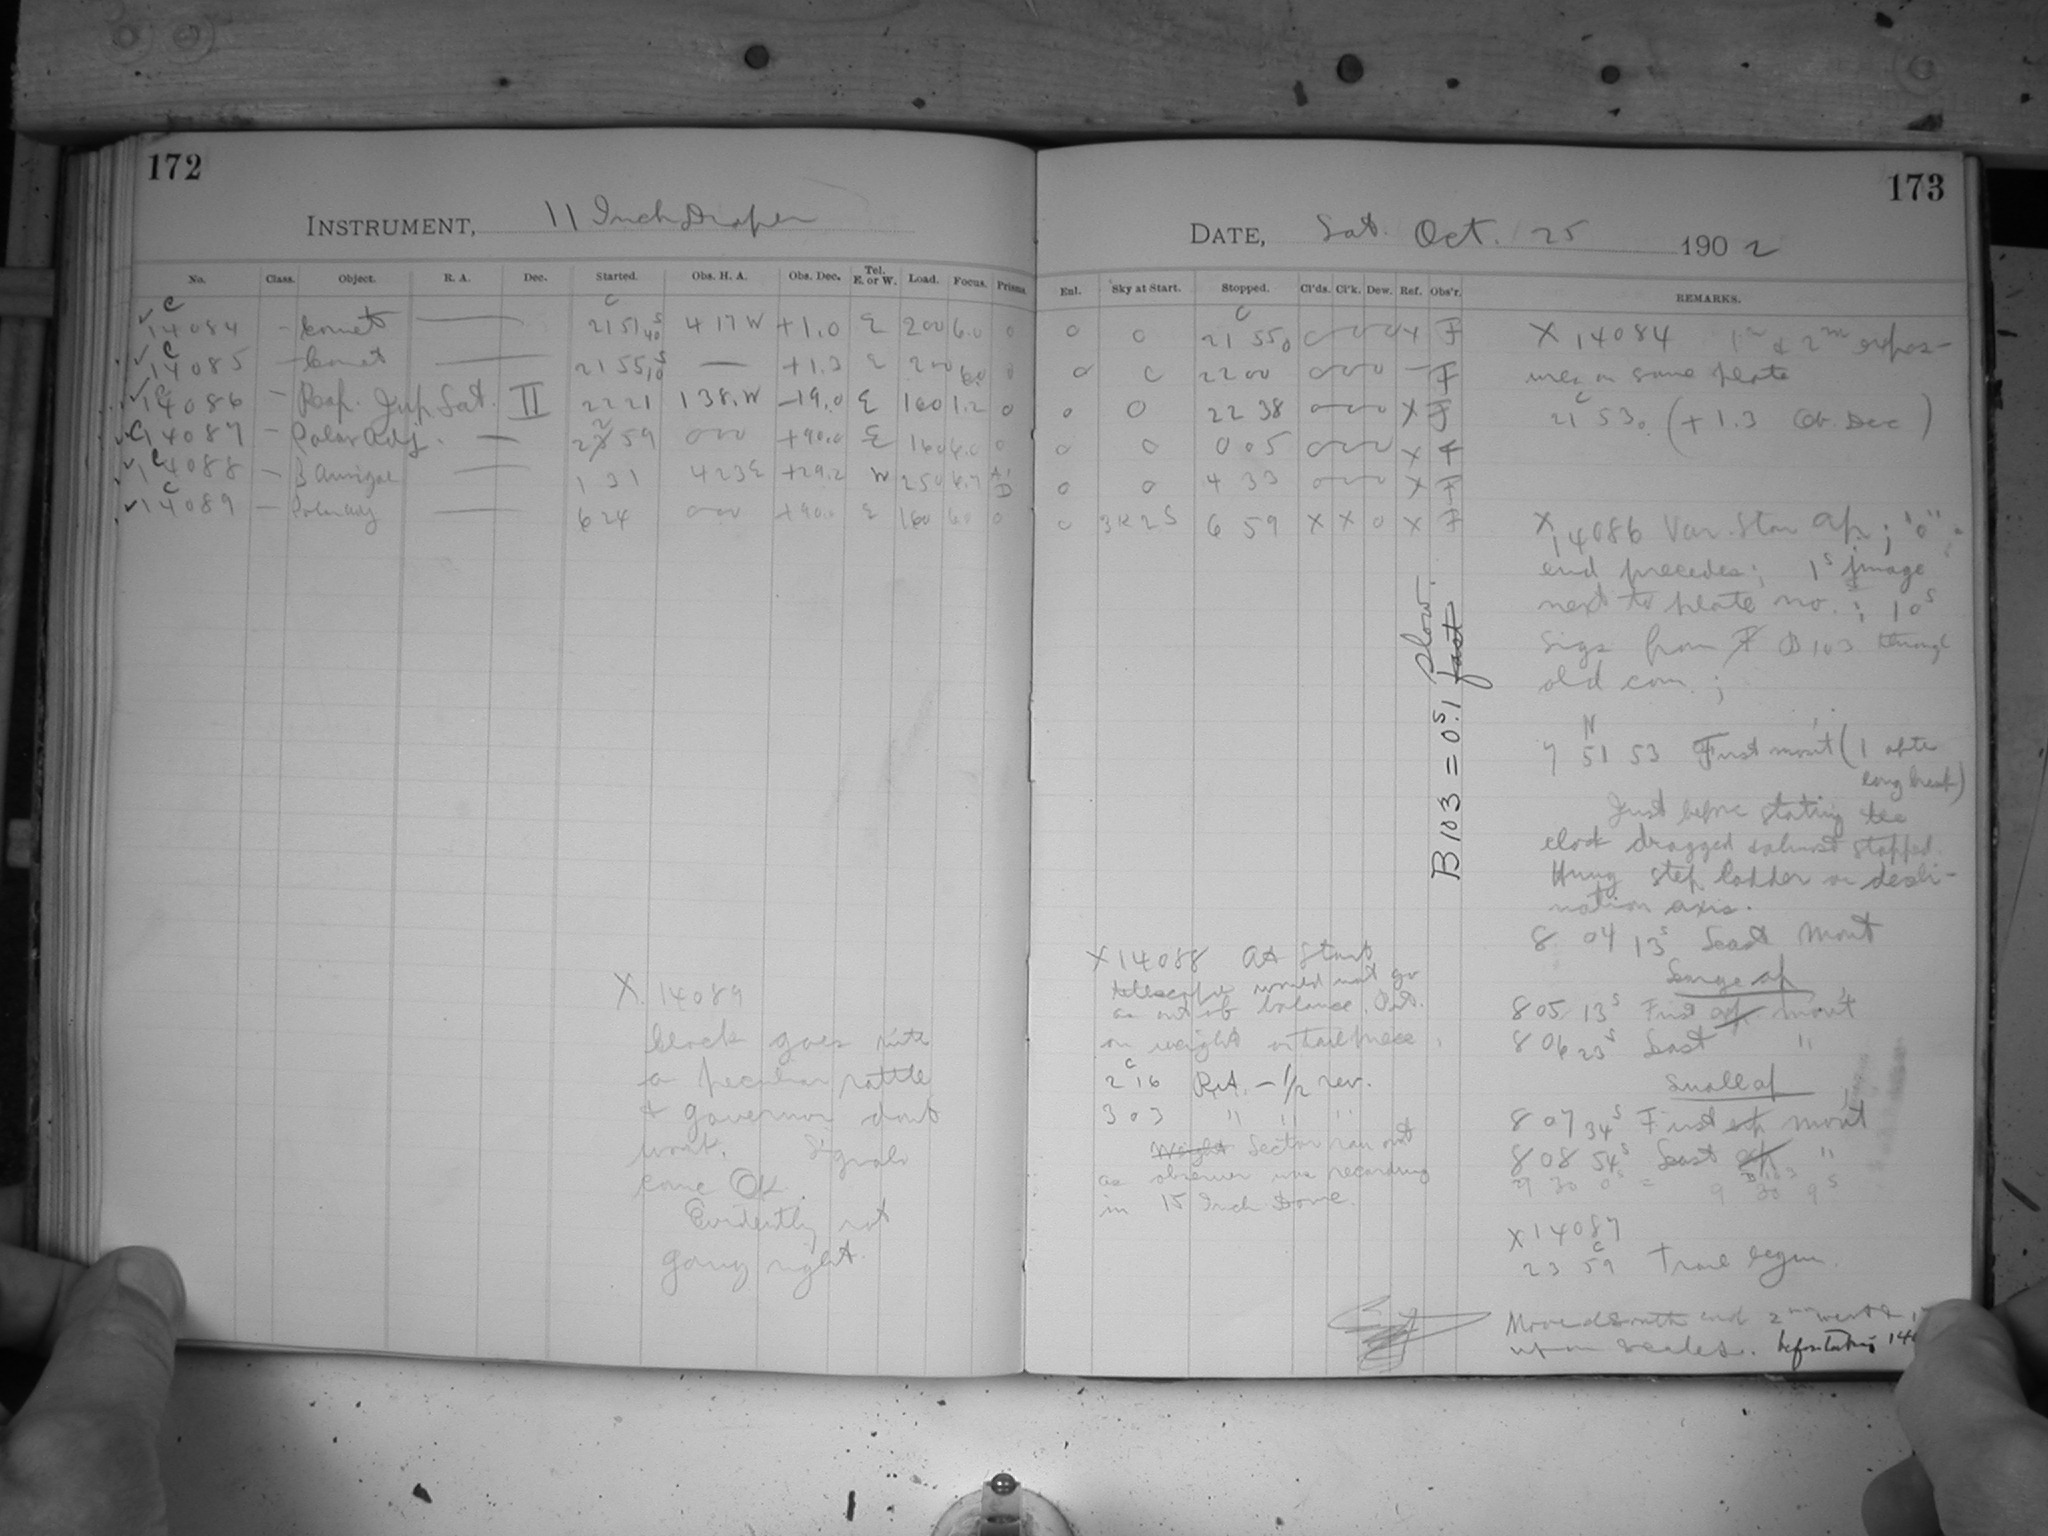 172
INSTRUMENT, 11 Inch Draper
No. Class. Object. R. A. Dec. Started. Obs. H. A. Obs. Dec. Tel. E. or W. Load. Focus. Prisms.
✓ C 14084 – Comet — C 21 51 40s 4 17 W +1.0 E 200 6.0 0
✓ C 14085 – Comet — 21 55 10s — +1.3 E 200 6.0 0
✓ C 14086 – Jup. Sat. II 22 21 1 38. W –19.0 E 160 1.2 0
✓ C 14087 – Polar Adj. — 59 000 +90.0 E 160 6.0 0
✓ C 14088 – β Aurigae — 1 31 4 23 E +29.2 W 250 6.7
✓ C 14089 – Polar adj — 6 24 000 +90.0 E 160 6.0 0
X 14089
Clock goes with
a peculiar rattle
& governor dont
work. Signals
come OK.
Evidently not
going right.
173
DATE, Sat. Oct. 25 1902
Enl. Sky at Start. Stopped. Cl'ds. Cl'k. Dew. Ref. Obs'r. REMARKS.
0 0 C 21 55 0 0 0 0 X F
0 C 22 00 0 0 0 – F
0 0 22 38 0 0 0 X F
0 0 0 05 0 0 0 X F
0 0 4 33 0 0 0 X F
0 6 59 X X 0 X F
B 103 = 0s.1 fast slow.
X 14088 At start
telescope would not go
as out of balance. Put
on weight on tailpiece.
2 C 16 R.A. – 1/2 rev.
3 03 " " "
Weight Sector ran out
as observer was recording
in 15 Inch Dome.
X 14084 1st & 2nd expos-
ures on same plate
21 C 53 0 (+1.3 Ob. Dec)
X 14086 Var. Star Ap.; "0"
end precedes; 1s image
next to plate no.; 10s
Sigs from F B 103 through
old com.;
7 51 53 First mov't (1 after
long break)
Just before starting the
clock dragged & almost stopped.
Hung step ladder on decli-
nation axis.
8 04 13s Last Mov't
Large ap
8 05 13s First ap mov't
8 06 23s Last "
Small ap
8 07 34s First ap mov't
8 08 54s Last ap "
X 14087
23 C 59 Trail begun.
Moved south end
upon scales. before taking